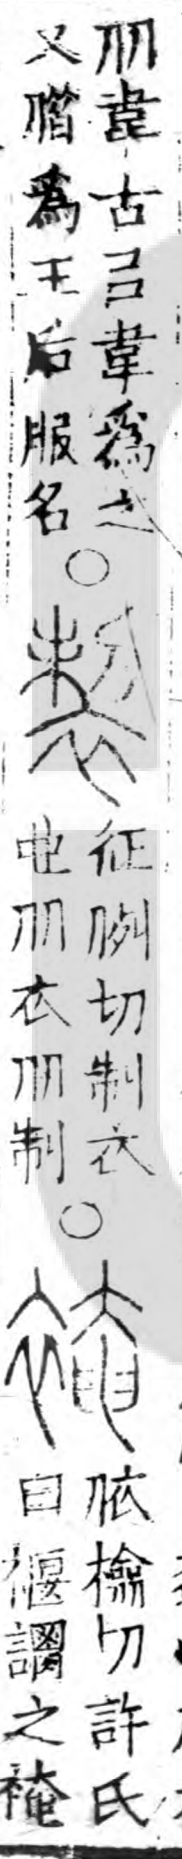 从韋古㠯韋爲之
又借爲王后服名○
製
征例切制衣
也从衣从制○
裺
依檢切許氏
曰褗謂之裺